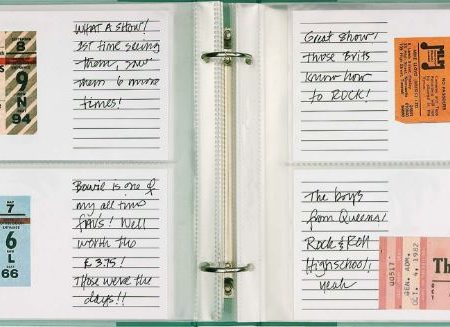 8
9
N
94
WHAT A SHOW!
1st time seeing
them, saw
them 6 more
times!
Great show!
Those Brits
know how
to ROCK!
7
6
L
66
Bowie is one of
my all time
FAVS! Well
worth the
£3.75!
Those were the
days!!
The boys
from Queens!
Rock & Roll
Highschool,
yeah
00517
GEN. ADM.
OCT. 4, 1982
Th